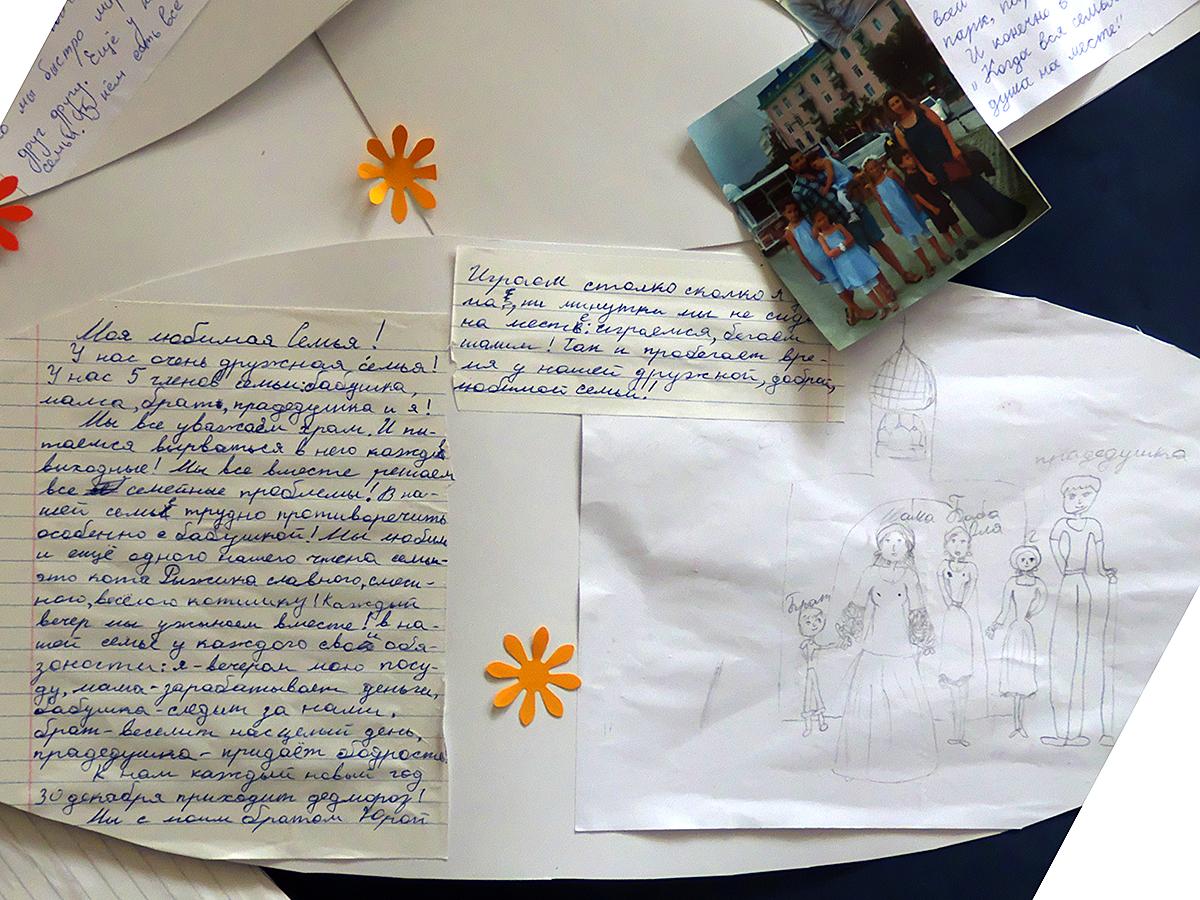 мы быстро
друг другу. Ещё у
семьи. В нём есть все
всей
парк,
И конечно в
"Когда вся семья
душа на месте!"
Моя любимая Семья!
У нас очень дружная, семья!
У нас 5 членов семьи: бабушка,
мама, брать, прадедушка и я!
Мы все уважаем храм. И пы-
таемся вырваться в него каждые
выходные! Мы все вместе решаем
все семейные проблемы! В на-
шей семье трудно противоречить
особенно с бабушкой! Мы любим
и ещё одного нашего члена семьи-
это кота Рыжика славного, смеш-
ного, весёлого котилику! Каждый
вечер мы ужынаем вместе! в на-
шей семье у каждого свои обя-
заности: я - вечерам мою посу-
ду, мама - зарабатывает деньги,
бабушка - следит за нами,
брат - веселит нас целий день,
прадедушка - придаёт бодрости
К нам каждый новый год
30 декабря приходит дедмороз!
Ми с моим братом Юрой
Играем столко сколко я
ма, ни минутки мы не сид
на месте: играемся, бегаем
шалим! Так и пробегает вре-
мя у нашей дружной, доброй,
любимой семьи!
прадедушка
Мама
Баба
Оля
Я
Брат